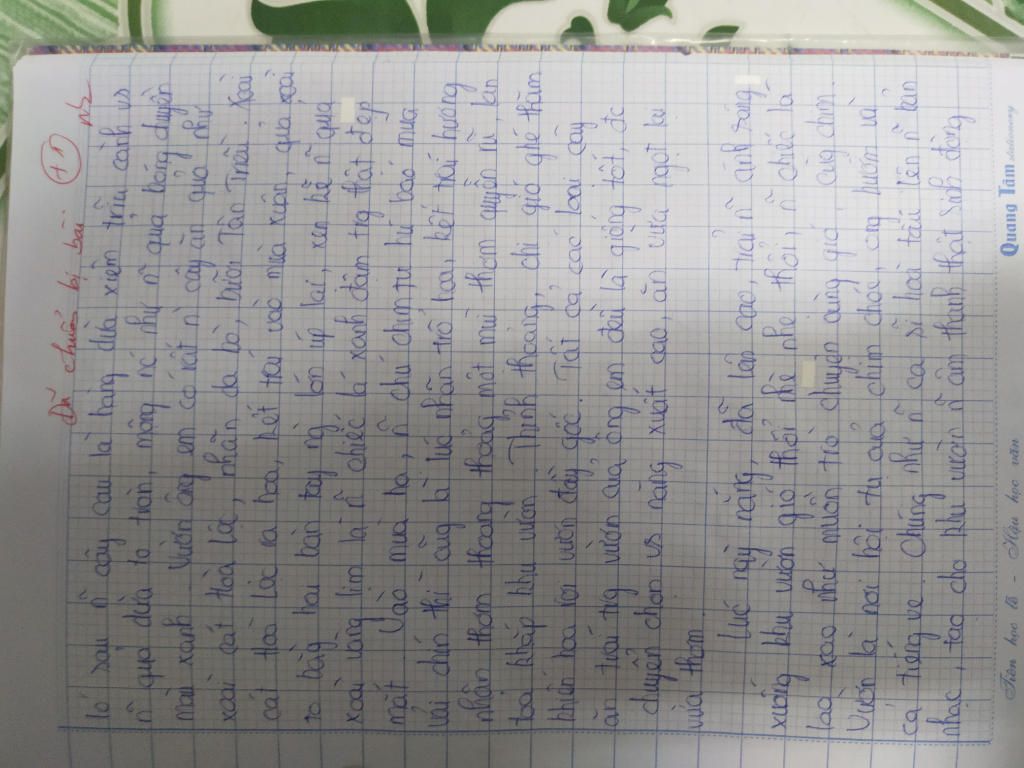 Đã chuẩn bị bài +1
ló sau n~ cây cau là hàng dừa xiêm trĩu cành vs
n~ quả dừa to tròn, mộng nc như n~ quả bóng chuyền
màu xanh. Vườn ông em có rất n` cây ăn quả như
xoài cát Hoà Lộc, nhãn da bò, bưởi Tân Triều. Xoài
cát Hoà Lộc ra hoa, kết trái vào mùa xuân, quả xoài
to bằng hai bàn tay ng` lớn úp lại, xen kẽ n~ quả
xoài vàng lịm là n~ chiếc lá xanh đậm trg thật đẹp
mắt. Vào mùa hạ, n~ chú chim tu hú báo mùa
vải chín thì cũng là lúc nhãn trổ hoa, kết trái hương
nhãn thơm thoang thoảng một mùi thơm quyến rũ, lan
toả khắp khu vườn. Thỉnh thoảng, chị gió ghé thăm
khiến hoa rơi vươn đầy gốc. Tất cả các loại cây
ăn trái trg vườn của ông em đều là giống tốt, đc
tuyển chọn vs năng xuất cao, ăn vừa ngọt lại
vừa thơm.
Lúc này nắng, đã lên cao, trải n~ ánh sáng
xuống khu vườn gió thổi nhè nhẹ thổi, n~ chiếc lá
lao xao như muốn trò chuyện cùng gió, cùng chim.
Vườn là nơi hội tụ của chim chóc, ong bướm và
cả tiếng ve. Chúng như n~ ca sĩ hoà tấu lên n~ bản
nhạc, tạo cho khu vườn n~ âm thanh thật sinh động
Tiên học lễ - Hậu học văn
Quang Tâm stationery